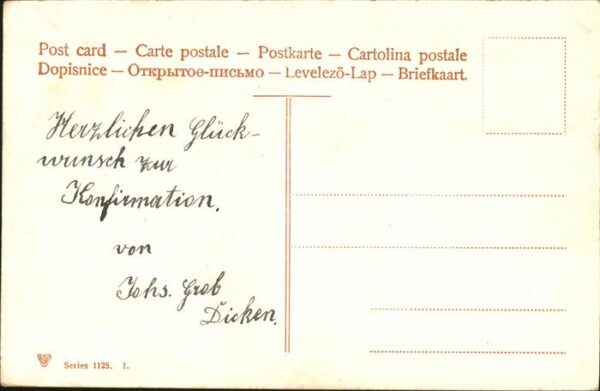 Post card – Carte postale – Postkarte – Cartolina postale
Dopisnice – Открытое-письмо – Levelezö-Lap – Briefkaart
Herzlichen Glück-
wunsch zur
Konfirmation.
von
Johs. Grob
Dicken.
Series 1125. 1.